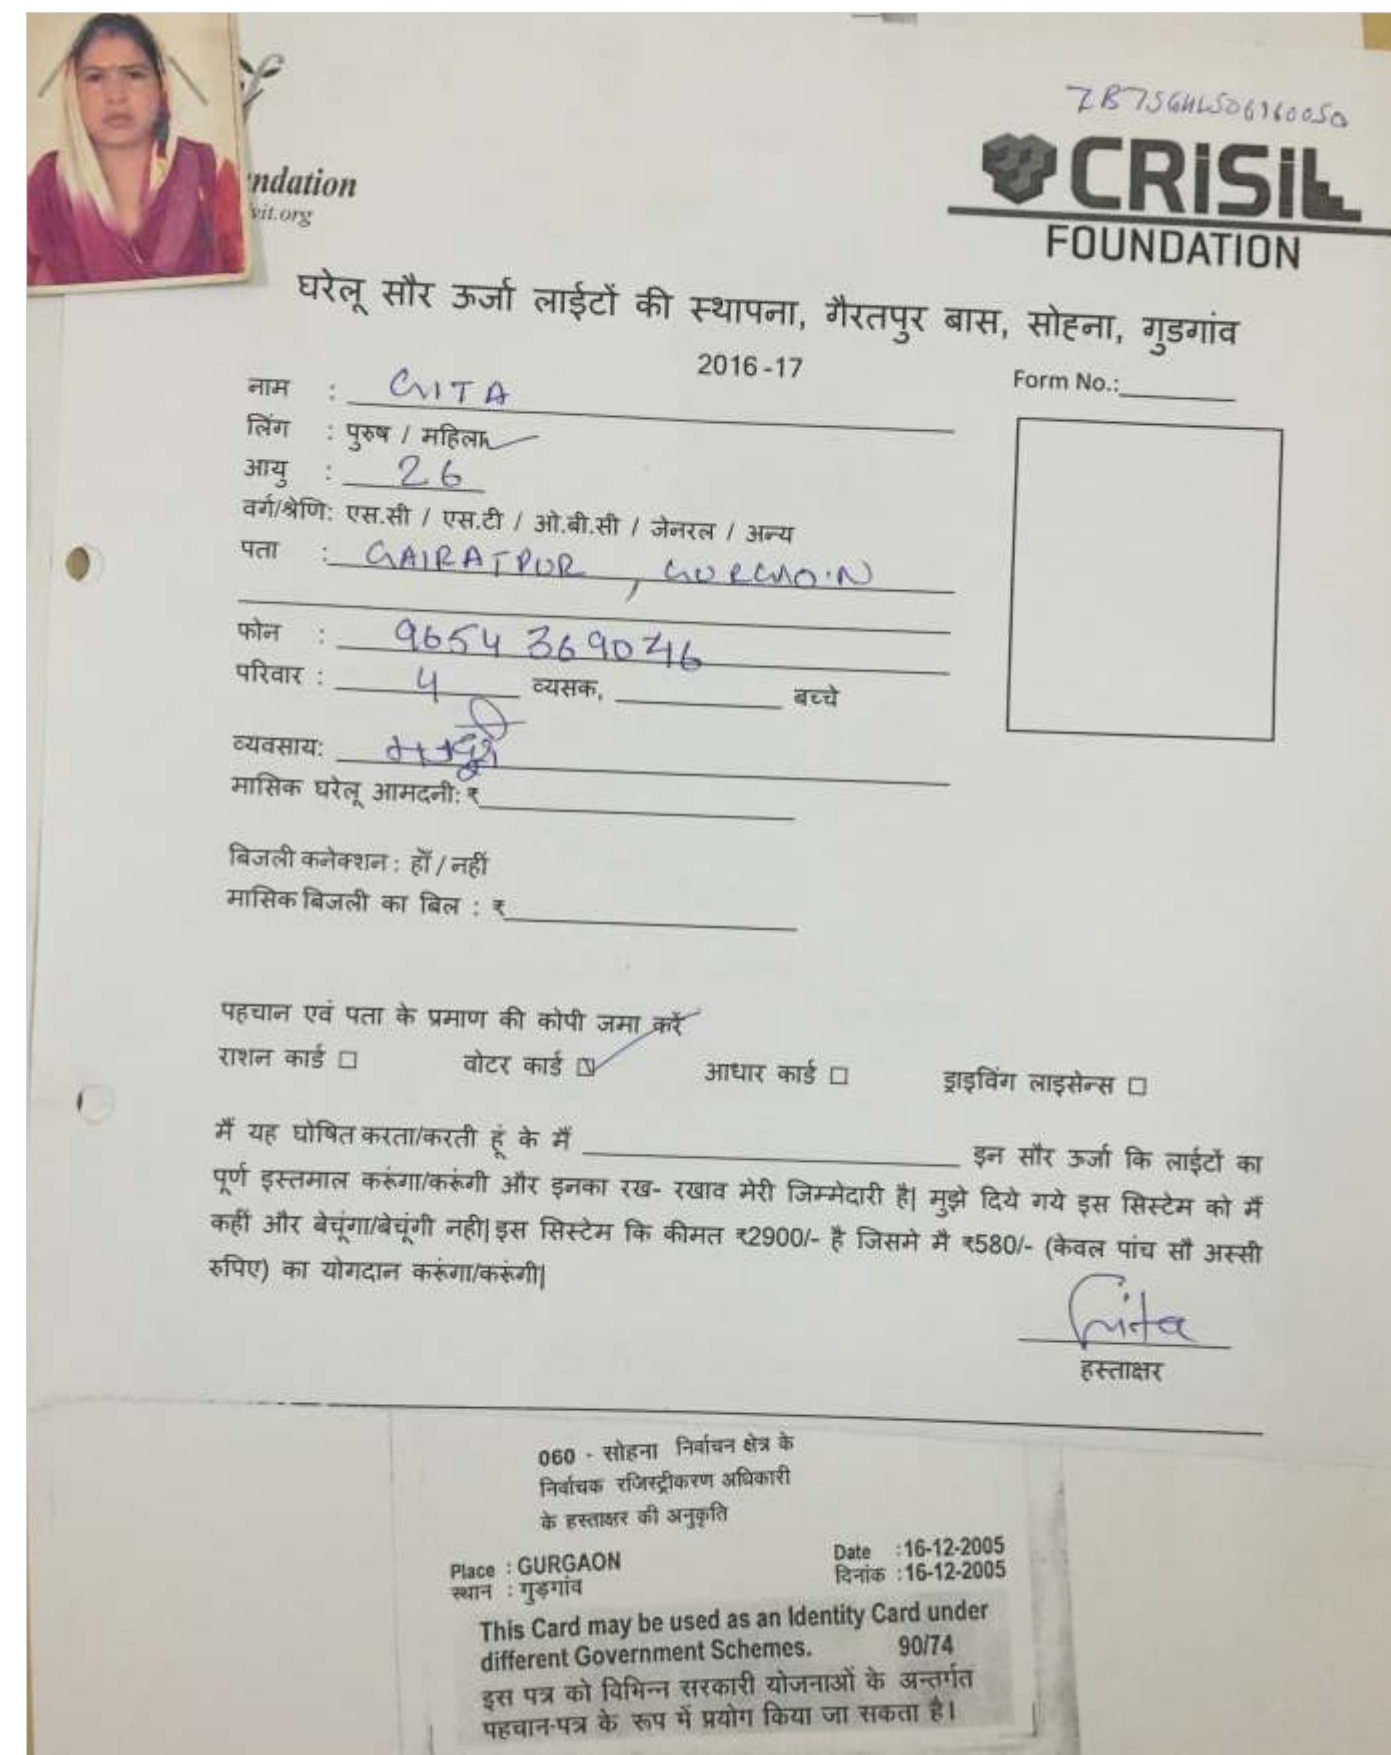 ZB7SGHLS06160050
ndation
vit.org
CRiSiL
FOUNDATION
घरेलू सौर ऊर्जा लाईटों की स्थापना, गैरतपुर बास, सोहना, गुडगांव
2016 -17
Form No.:
नाम : GITA
लिंग : पुरुष / महिला
आयु : 26
वर्ग/श्रेणि: एस.सी / एस.टी / ओ.बी.सी / जेनरल / अन्य
पता : GAIRATPUR , GURGAON
फोन : 9654369046
परिवार : 4 व्यसक, बच्चे
व्यवसाय:
मासिक घरेलू आमदनी: ₹
बिजली कनेक्शन : हाँ / नहीं
मासिक बिजली का बिल : ₹
पहचान एवं पता के प्रमाण की कोपी जमा करें
राशन कार्ड □ वोटर कार्ड ☑ आधार कार्ड □ ड्राइविंग लाइसेन्स □
मैं यह घोषित करता/करती हूं के मैं इन सौर ऊर्जा कि लाईटों का
पूर्ण इस्तमाल करूंगा/करूंगी और इनका रख- रखाव मेरी जिम्मेदारी है| मुझे दिये गये इस सिस्टेम को मैं
कहीं और बेचूंगा/बेचूंगी नही| इस सिस्टेम कि कीमत ₹2900/- है जिसमे मै ₹580/- (केवल पांच सौ अस्सी
रुपिए) का योगदान करूंगा/करूंगी|
Gita
हस्ताक्षर
060 - सोहना निर्वाचन क्षेत्र के
निर्वाचक रजिस्ट्रीकरण अधिकारी
के हस्ताक्षर की अनुकृति
Place : GURGAON Date : 16-12-2005
स्थान : गुड़गांव दिनांक : 16-12-2005
This Card may be used as an Identity Card under
different Government Schemes. 90/74
इस पत्र को विभिन्न सरकारी योजनाओं के अन्तर्गत
पहचान-पत्र के रूप में प्रयोग किया जा सकता है।